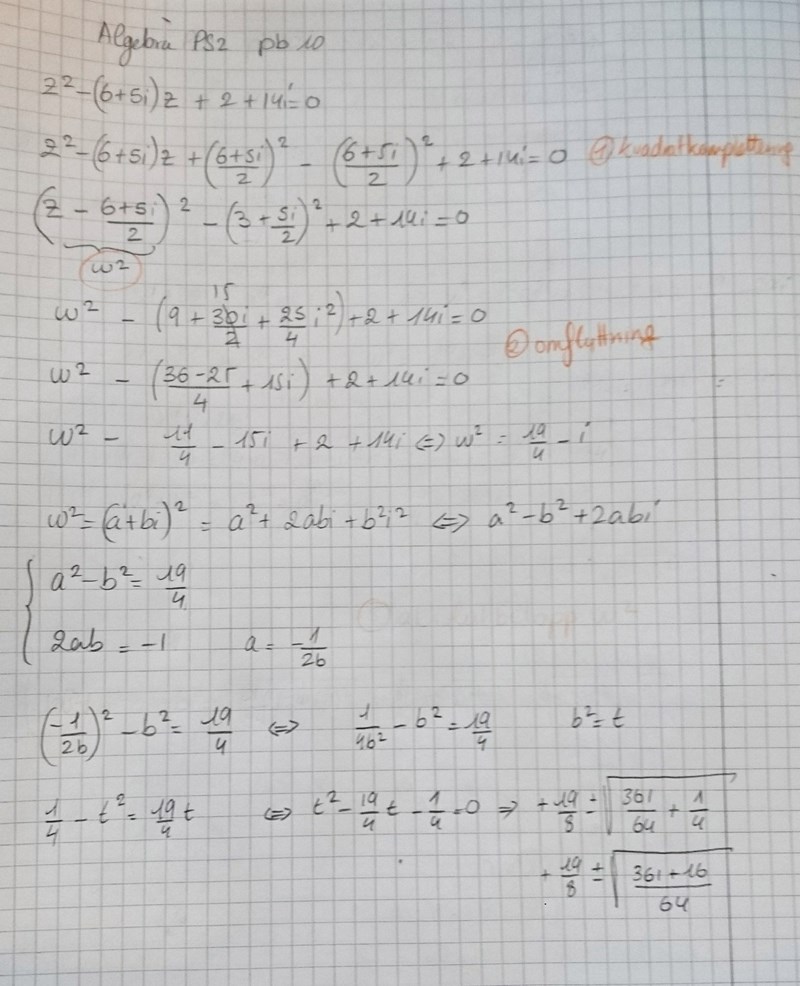 Algebra PS2 pb 10
z² - (6+5i)z + 2 + 14i = 0
z² - (6+5i)z + ((6+5i)/2)² - ((6+5i)/2)² + 2 + 14i = 0 ① kvadratkomplettering
(z - (6+5i)/2)² - (3 + 5i/2)² + 2 + 14i = 0
w²
15
w² - (9 + 30i/2 + 25/4 i²) + 2 + 14i = 0
② omflyttning
w² - ((36-25)/4 + 15i) + 2 + 14i = 0
w² - 11/4 - 15i + 2 + 14i ⇔ w² = 19/4 - i
w² = (a+bi)² = a² + 2abi + b²i² ⇔ a² - b² + 2abi
{ a² - b² = 19/4
2ab = -1 a = -1/2b
(-1/2b)² - b² = 19/4 ⇔ 1/4b² - b² = 19/4 b² = t
1/4 - t² = 19/4 t ⇔ t² - 19/4 t - 1/4 = 0 ⇒ + 19/8 ± √(361/64 + 1/4)
+ 19/8 ± √((361+16)/64)